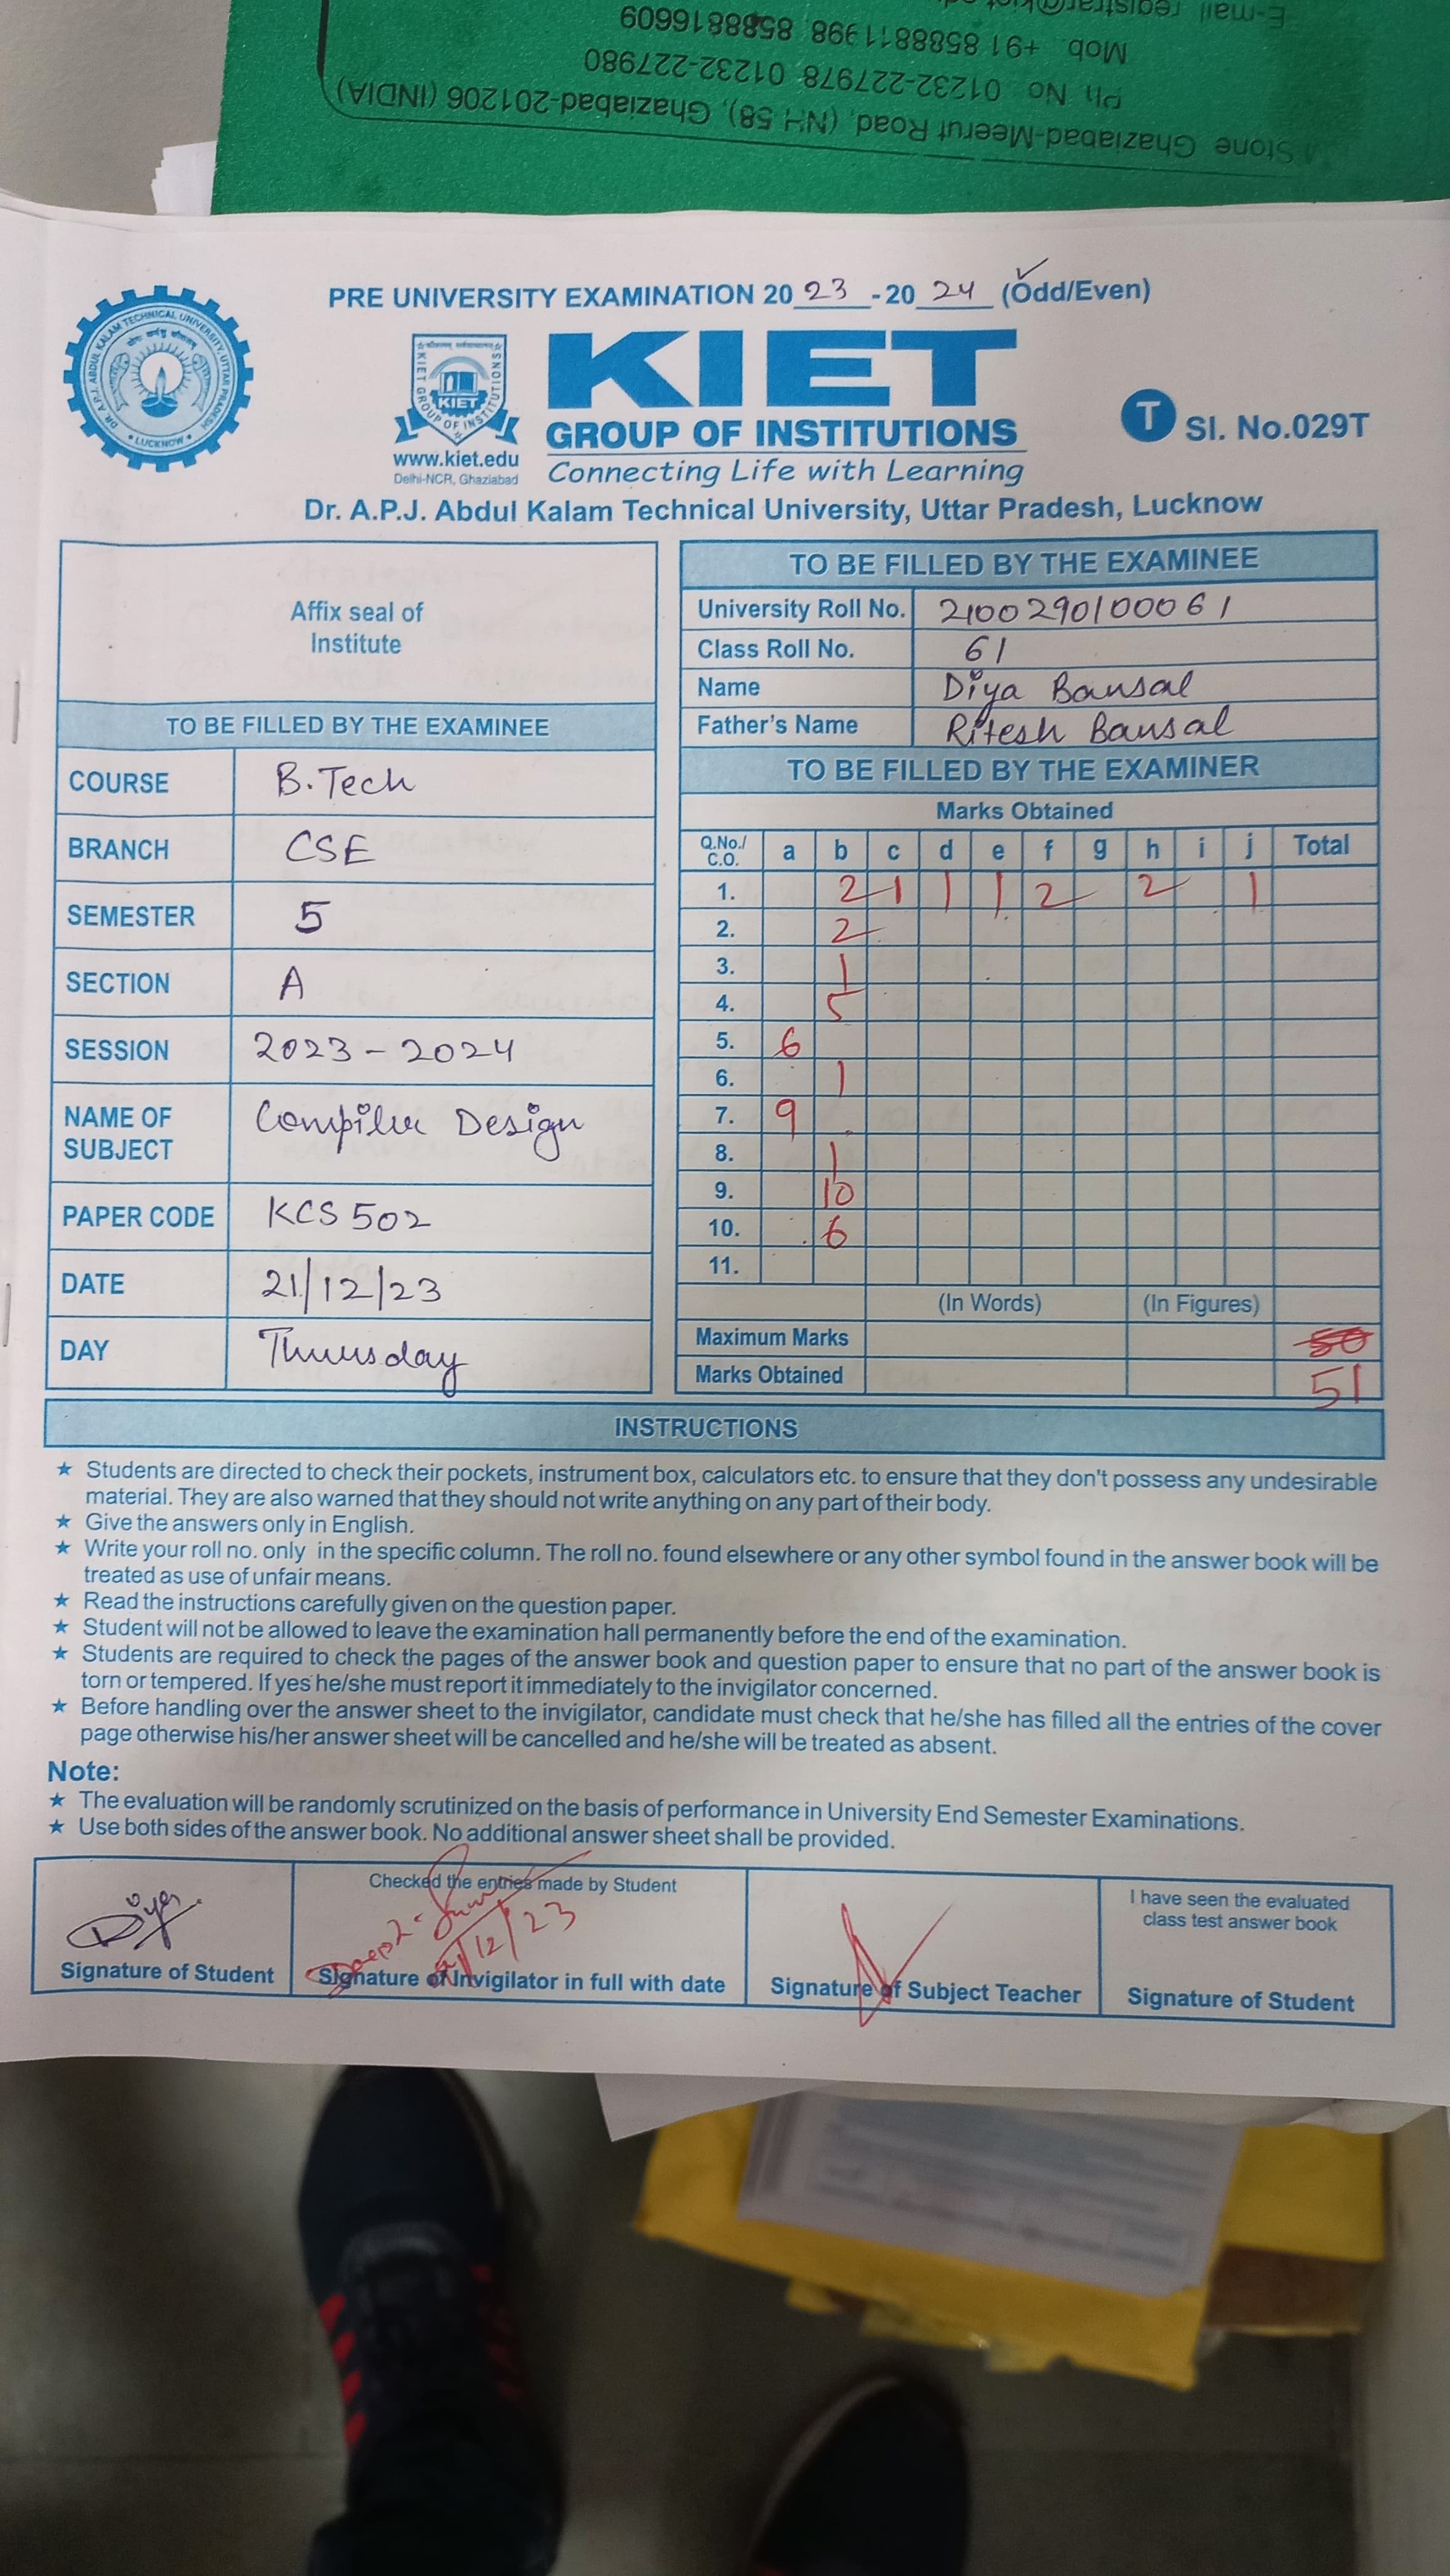 E-mail registrar@kiet.ed
Mob. +91 8588811998, 8588816609
Ph. No. 01232-227978, 01232-227980
Stone Ghaziabad-Meerut Road, (NH 58), Ghaziabad-201206 (INDIA)
PRE UNIVERSITY EXAMINATION 20 23 - 20 24 (Odd/Even)
DR. A.P.J. ABDUL KALAM TECHNICAL UNIVERSITY, UTTAR PRADESH
LUCKNOW
KIET GROUP OF INSTITUTIONS
KIET
www.kiet.edu
Delhi-NCR, Ghaziabad
KIET
GROUP OF INSTITUTIONS
Connecting Life with Learning
T Sl. No.029T
Dr. A.P.J. Abdul Kalam Technical University, Uttar Pradesh, Lucknow
Affix seal of
Institute
TO BE FILLED BY THE EXAMINEE
COURSE B.Tech
BRANCH CSE
SEMESTER 5
SECTION A
SESSION 2023 - 2024
NAME OF
SUBJECT Compiler Design
PAPER CODE KCS 502
DATE 21/12/23
DAY Thursday
TO BE FILLED BY THE EXAMINEE
University Roll No. 2100290100061
Class Roll No. 61
Name Diya Bansal
Father's Name Ritesh Bansal
TO BE FILLED BY THE EXAMINER
Marks Obtained
Q.No./ C.O. a b c d e f g h i j Total
1. 2 1 1 1 2 2 1
2. 2
3. 1
4. 5
5. 6
6. 1
7. 9
8. 1
9. 10
10. 6
11.
(In Words) (In Figures)
Maximum Marks 50
Marks Obtained 51
INSTRUCTIONS
★ Students are directed to check their pockets, instrument box, calculators etc. to ensure that they don't possess any undesirable
material. They are also warned that they should not write anything on any part of their body.
★ Give the answers only in English.
★ Write your roll no. only in the specific column. The roll no. found elsewhere or any other symbol found in the answer book will be
treated as use of unfair means.
★ Read the instructions carefully given on the question paper.
★ Student will not be allowed to leave the examination hall permanently before the end of the examination.
★ Students are required to check the pages of the answer book and question paper to ensure that no part of the answer book is
torn or tempered. If yes he/she must report it immediately to the invigilator concerned.
★ Before handling over the answer sheet to the invigilator, candidate must check that he/she has filled all the entries of the cover
page otherwise his/her answer sheet will be cancelled and he/she will be treated as absent.
Note:
★ The evaluation will be randomly scrutinized on the basis of performance in University End Semester Examinations.
★ Use both sides of the answer book. No additional answer sheet shall be provided.
Diya
Signature of Student
Checked the entries made by Student
21/12/23
Signature of Invigilator in full with date
Signature of Subject Teacher
I have seen the evaluated
class test answer book
Signature of Student